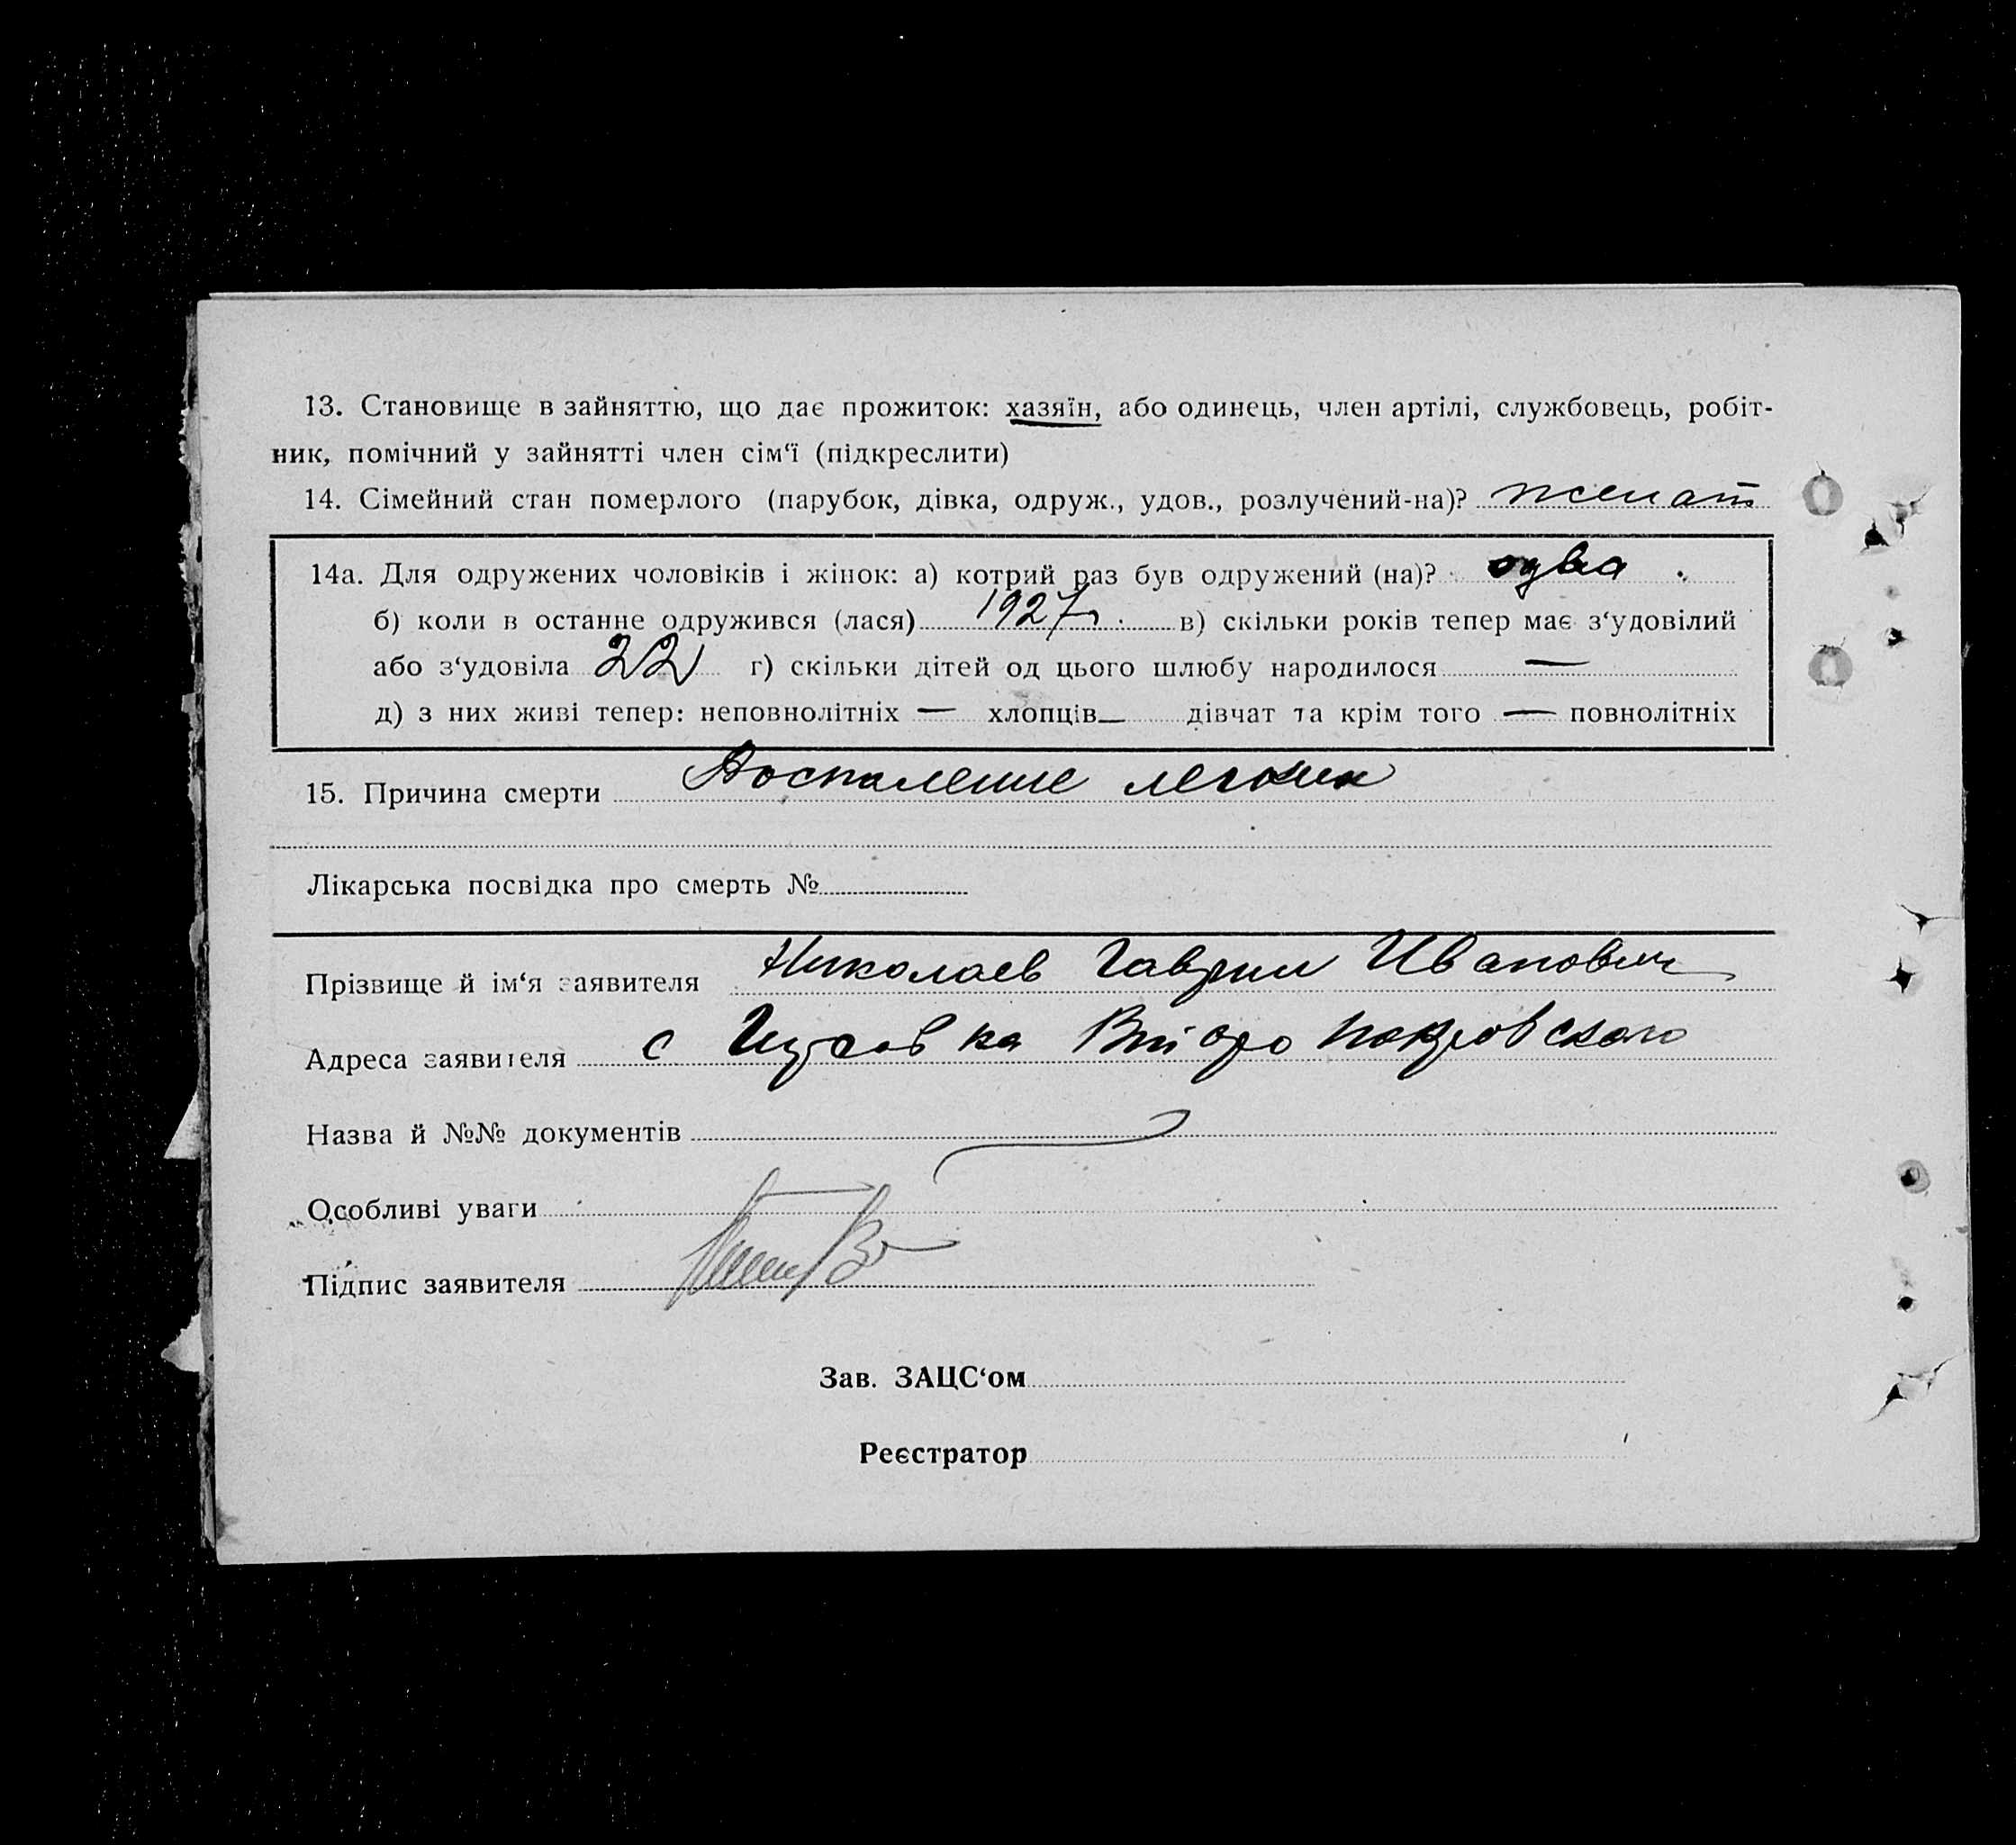 13. Становище в зайняттю, що дає прожиток: хазяїн, або одинець, член артілі, службовець, робіт-
ник, помічний у зайнятті член сім‘ї (підкреслити)
14. Сімейний стан померлого (парубок, дівка, одруж., удов., розлучений-на)? женат
14а. Для одружених чоловіків і жінок: а) котрий раз був одружений (на)?
б) коли в останне одружився (лася) 1927 в) скільки років тепер має з‘удовілий
або з‘удовіла 22 г) скільки дітей од цього шлюбу народилося —
д) з них живі тепер: неповнолітніх — хлопців — дівчат та крім того — повнолітніх
15. Причина смерти Воспаление легких
Лікарська посвідка про смерть №
Прізвище й ім‘я заявителя Николаев Гаврил Иванович
Адреса заявителя с покровского
Назва й №№ документів
Особливі уваги
Підпис заявителя
Зав. ЗАЦС‘ом
Реєстратор